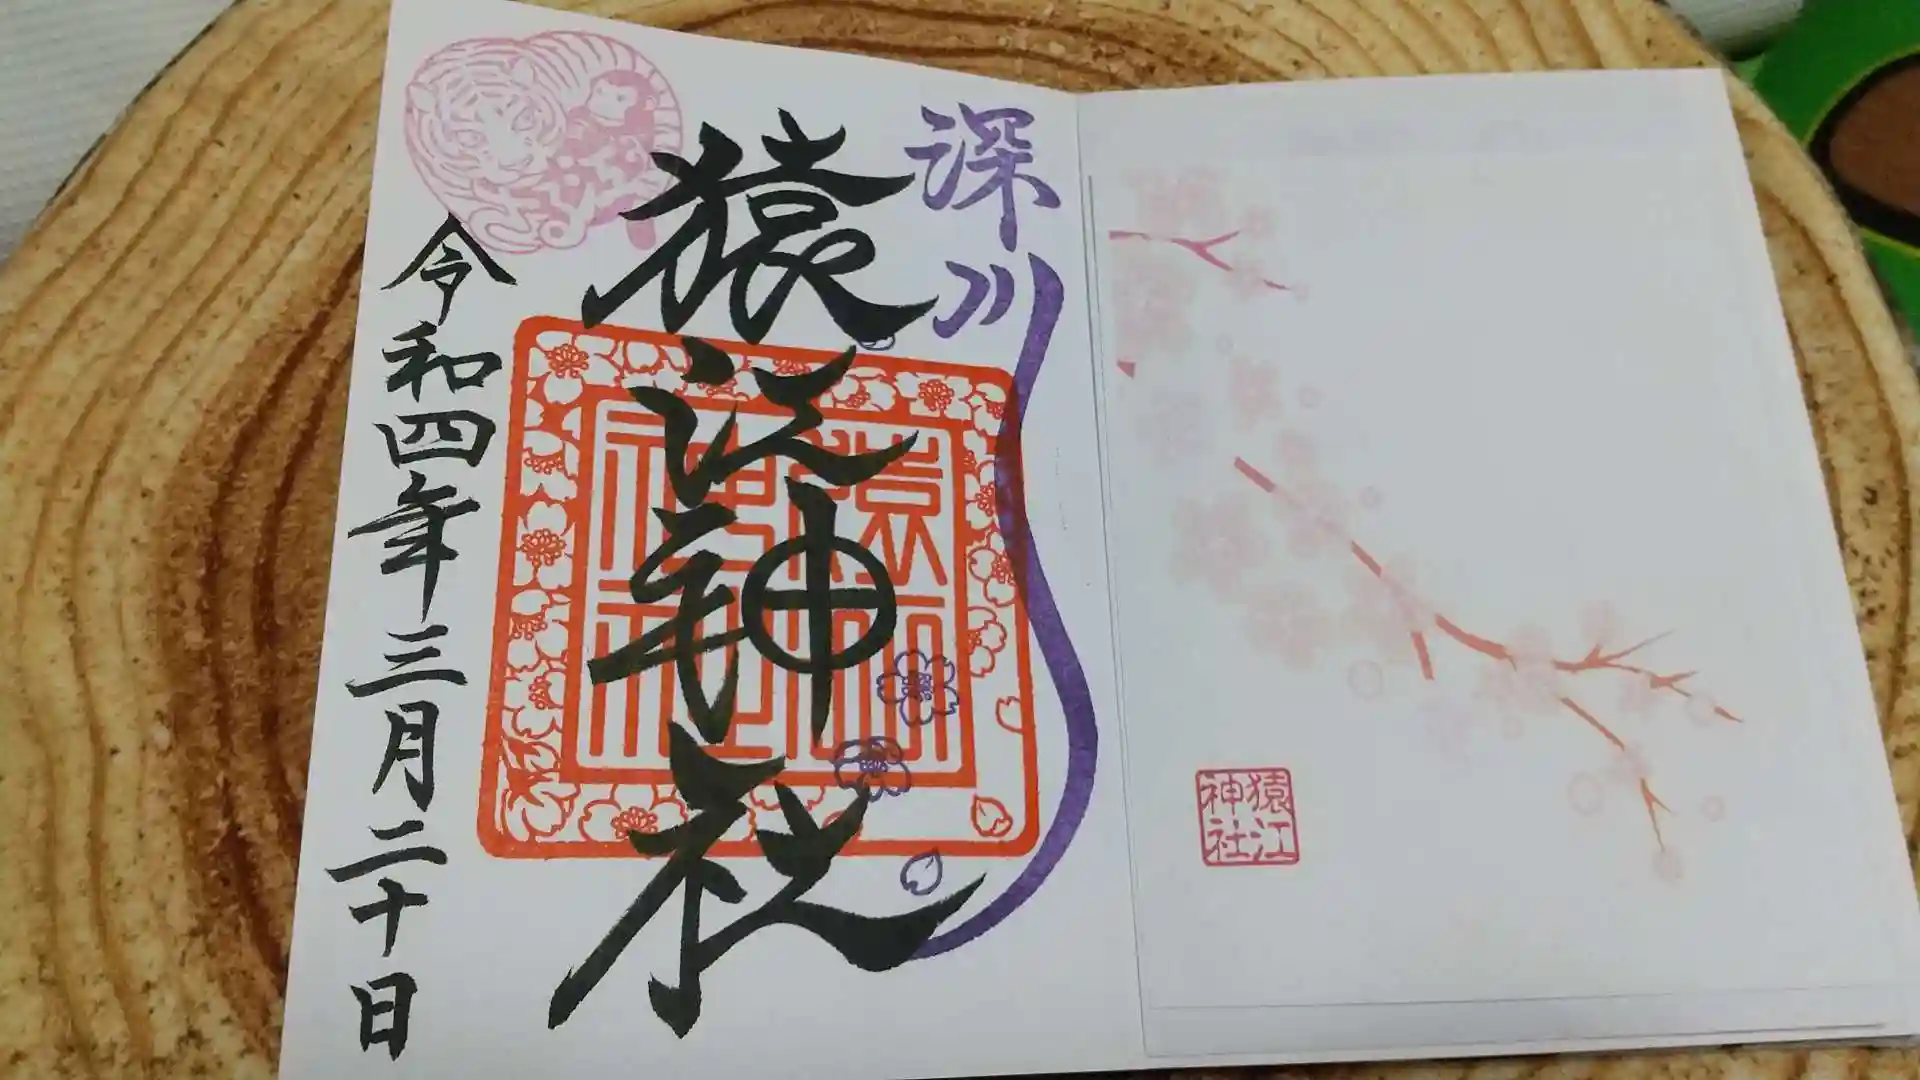 深川
猿江神社
令和四年三月二十日
猿江
神社
猿江
神社